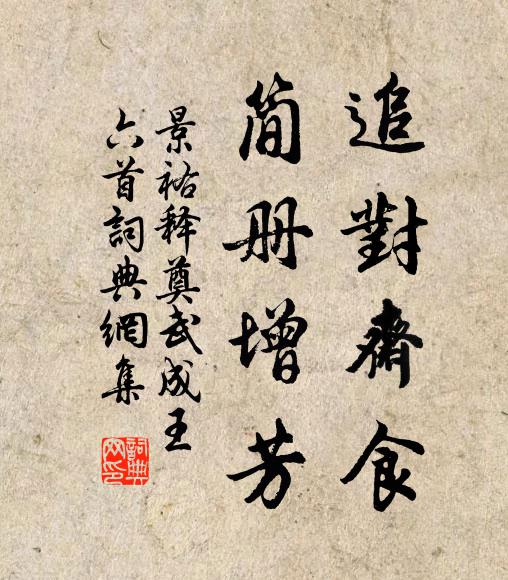 追對齋食
簡册增芳
景祐释奠武成王
六首詞典網集
詞典
网印